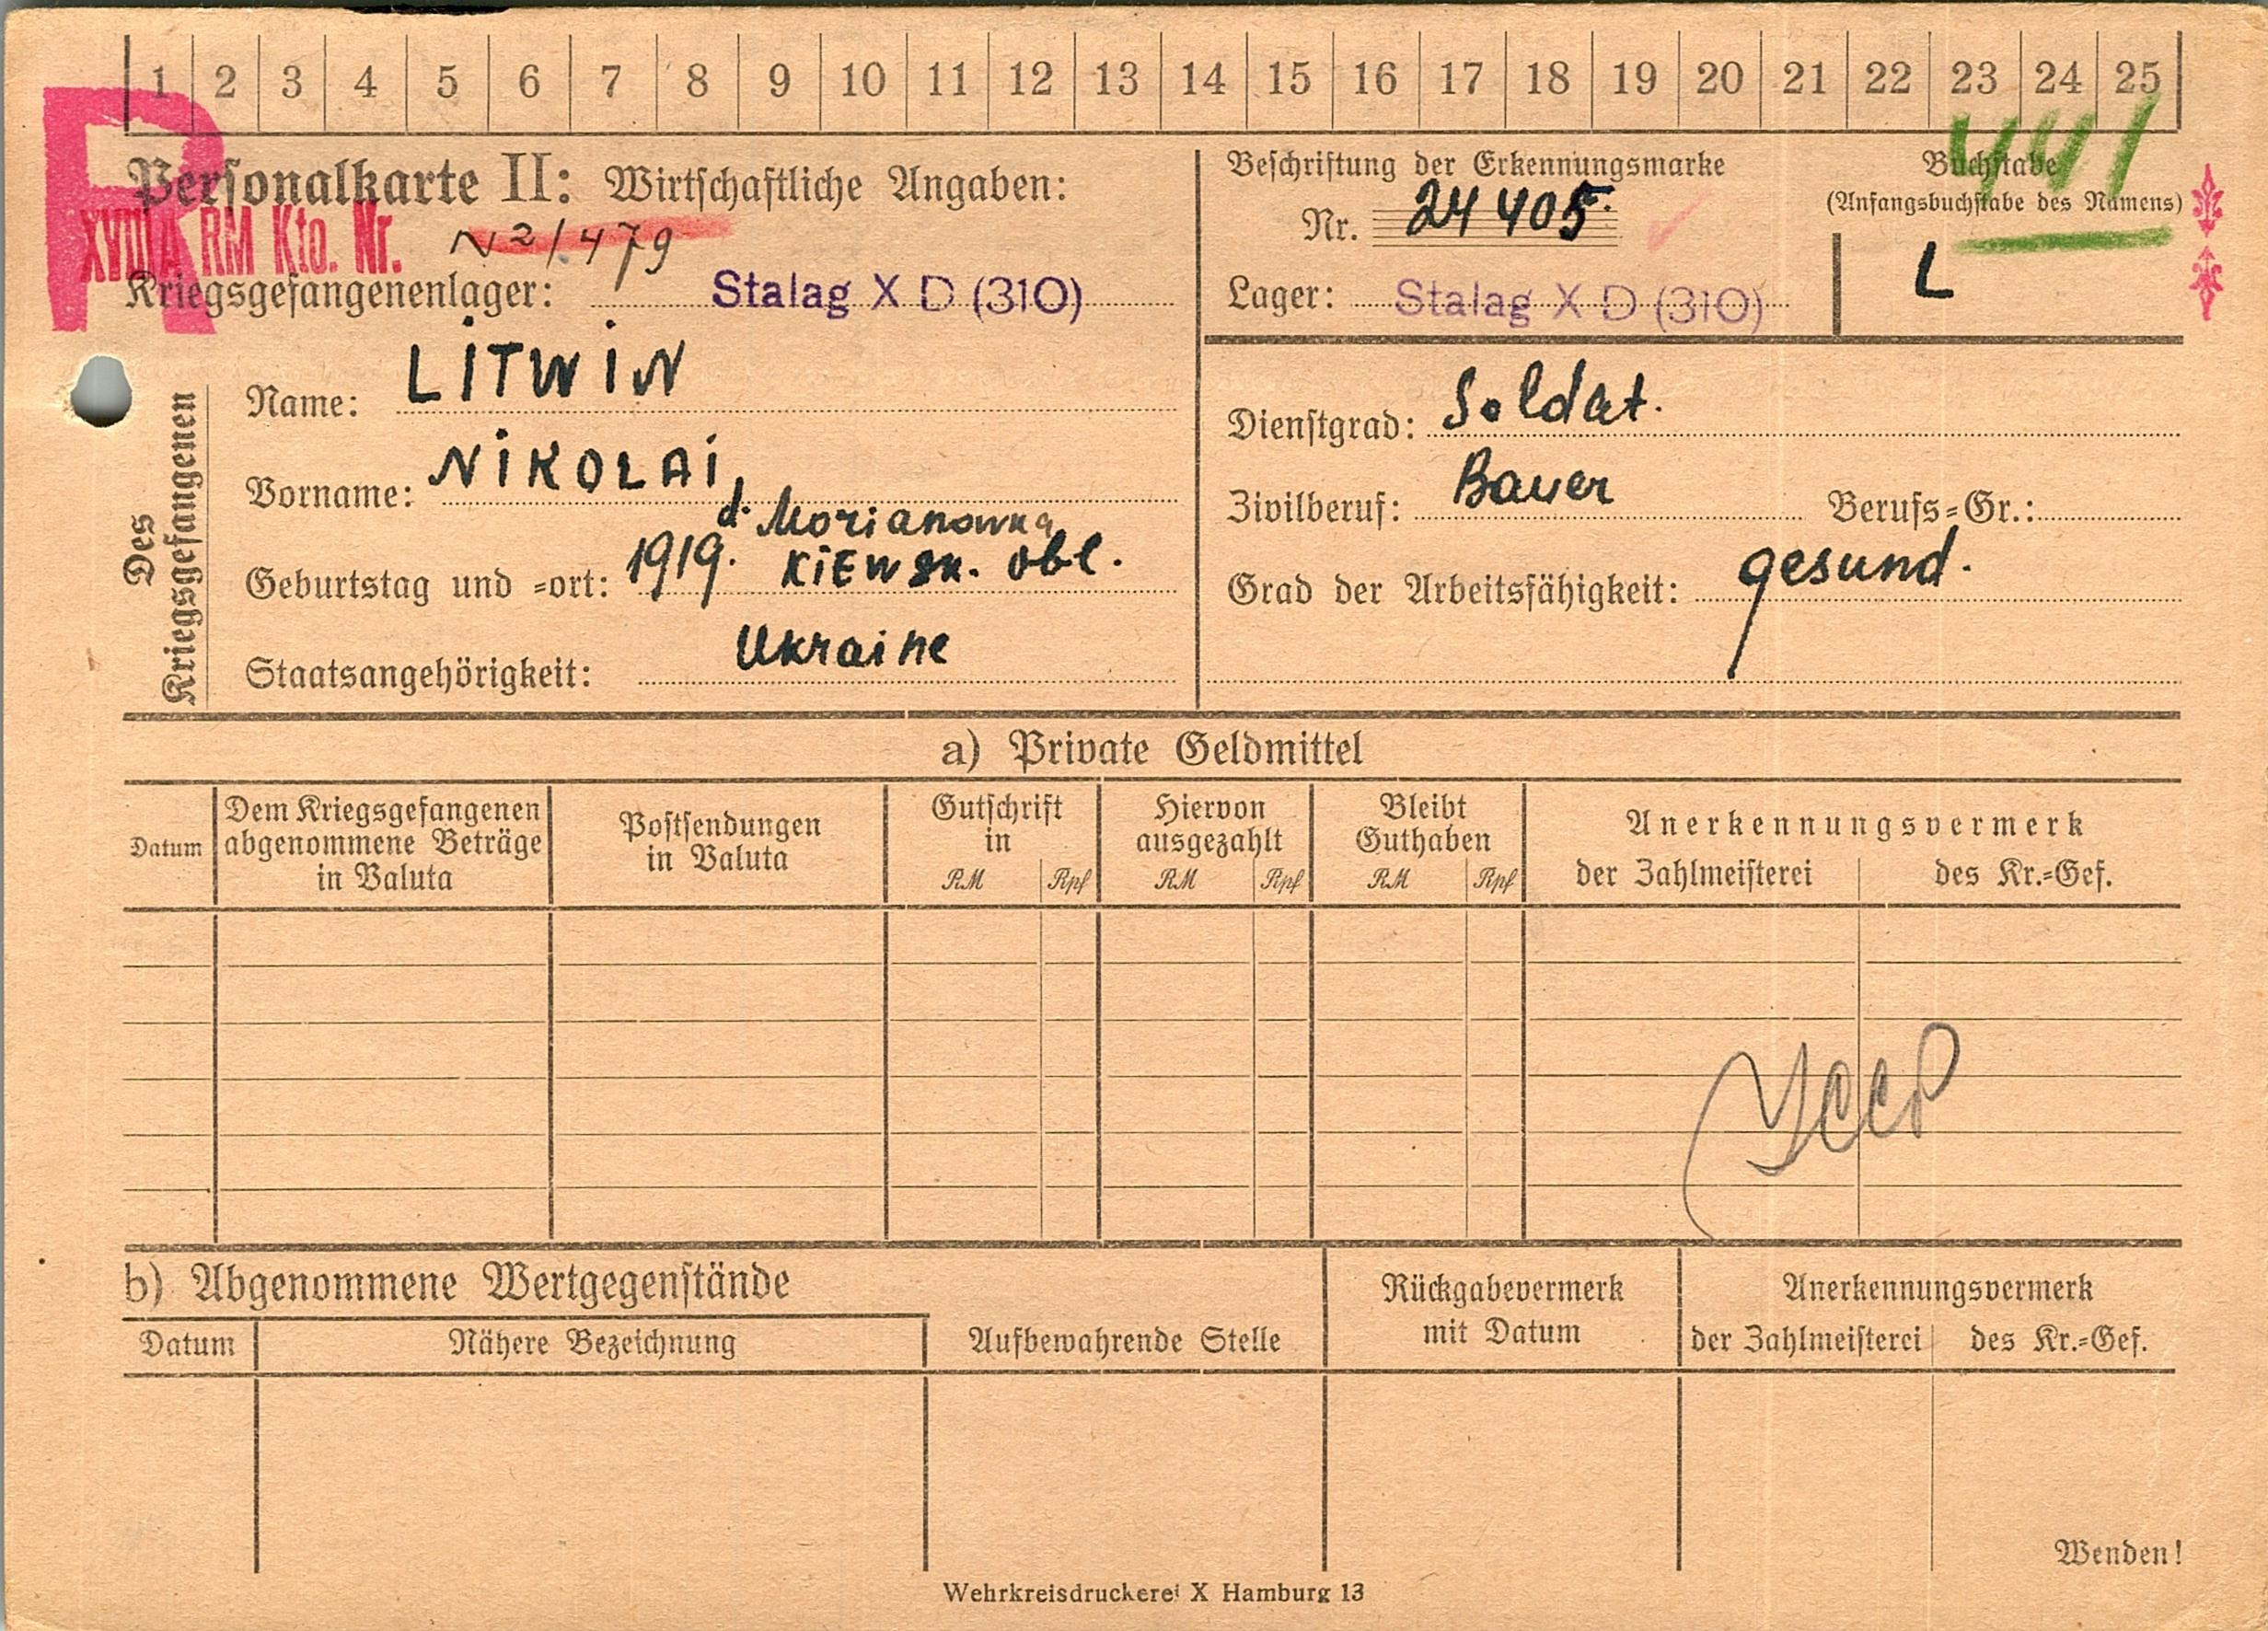 1 2 3 4 5 6 7 8 9 10 11 12 13 14 15 16 17 18 19 20 21 22 23 24 25
R
Personalkarte II: Wirtschaftliche Angaben:
XVIII A RM Kto. Nr. N 2/479
Kriegsgefangenenlager: Stalag X D (310)
Beschriftung der Erkennungsmarke
Nr. 24405.
Lager: Stalag X D (310)
441
Buchstabe
(Anfangsbuchstabe des Namens)
L
Des
Kriegsgefangenen
Name: LITWIN
Vorname: NIKOLAI,
d. Morianowka
Geburtstag und =ort: 1919. KIEWSK. obl.
Staatsangehörigkeit: Ukraine
Dienstgrad: Soldat.
Zivilberuf: Bauer Berufs=Gr.:
Grad der Arbeitsfähigkeit: gesund.
a) Private Geldmittel
Datum
Dem Kriegsgefangenen
abgenommene Beträge
in Valuta
Postsendungen
in Valuta
Gutschrift
in
RM Rpf
Hiervon
ausgezahlt
RM Rpf
Bleibt
Guthaben
RM Rpf
Anerkennungsvermerk
der Zahlmeisterei des Kr.=Gef.
УССР
b) Abgenommene Wertgegenstände
Datum Nähere Bezeichnung
Aufbewahrende Stelle
Rückgabevermerk
mit Datum
Anerkennungsvermerk
der Zahlmeisterei des Kr.=Gef.
Wenden!
Wehrkreisdruckerei X Hamburg 13